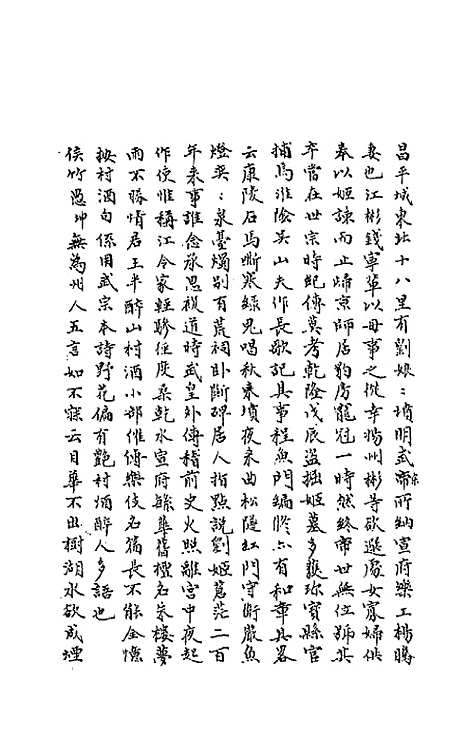 昌平城東北十八里有劉娘〻墳明武宗帝所納宣府樂工楊騰
妻也江彬錢寧輩以母事之從幸揚州彬等欲選處女寡婦供
奉以姬諫而止歸京師居豹房寵冠一時然終帝世無位號其
卒當在世宗時紀傳莫考乾隆戊辰盜掘姬墓多襲珍寶縣官
捕焉淮陰吳山夫作長歌記其事程魚門編修亦有和章其畧
云康陵石馬嘶寒綠鬼唱秋墳夜來曲松隧紅門守衛嚴魚
燈熒〻泉臺燭別有荒祠卧斷碑居人指點說劉姬蒼茫二百
年來事誰念承恩複道時武皇外傳稽前史火照離宮中夜起
作使惟稱江令家輕驂徑度桑乾水宣府繇華舊擅名朱樓夢
雨不勝情君王半醉山村酒小部催傳樂伎名篇長不能全憶
按村酒句係用武宗本詩野花偏有艷村酒醉人多語也
侯竹愚坤無為州人五言如不寐云目華不出樹湖水欲成堙